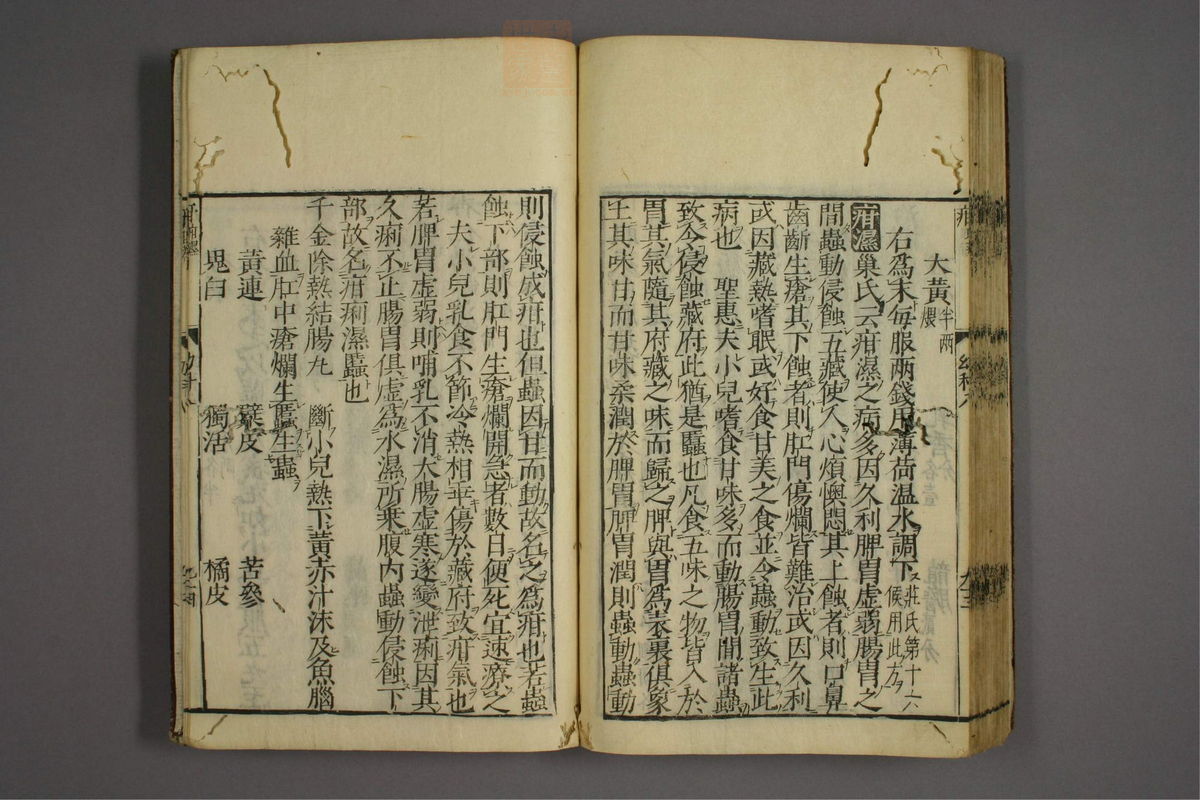 大黄半两煨
右爲末每服两錢用薄荷温水調下庄氏第十六候用此方
疳濕巢氏云疳濕之病多因久利脾胃虚弱腸胃之
間蟲動侵蝕五藏使人心煩懊悶其上蝕者則口鼻
齒齗生瘡其下蝕者則肛門傷爛皆難治或因久利
或因藏熱嗜眠或好食甘美之食並令蟲動致生此
病也 聖惠夫小兒嗜食甘味多而動腸胃間諸蟲
致令侵蝕藏府此猶是䘌也凡食五味之物皆入於
胃其氣隨其府藏之味而歸之脾與胃爲表裏俱象
土其味甘而甘味柔潤於脾胃脾胃潤則蟲動蟲動
則侵蝕成疳也但蟲因甘而動故名之爲疳也若蟲
蝕下部則肛門生瘡爛開急者數日便死宜速療之
夫小兒乳食不節冷熱相乖傷於藏府致疳氣也
若脾胃虚弱則哺乳不消大腸虚寒遂變泄痢因其
久痢不止腸胃俱虚爲水濕所乗腹内蟲動侵蝕下
部故名疳痢濕䘌也
千金除熱結腸丸 斷小兒熱下黄赤汁沫及魚腦
雜血肛中瘡爛生䘌生蟲
黄連 蘗皮 苦參
鬼臼 獨活 橘皮